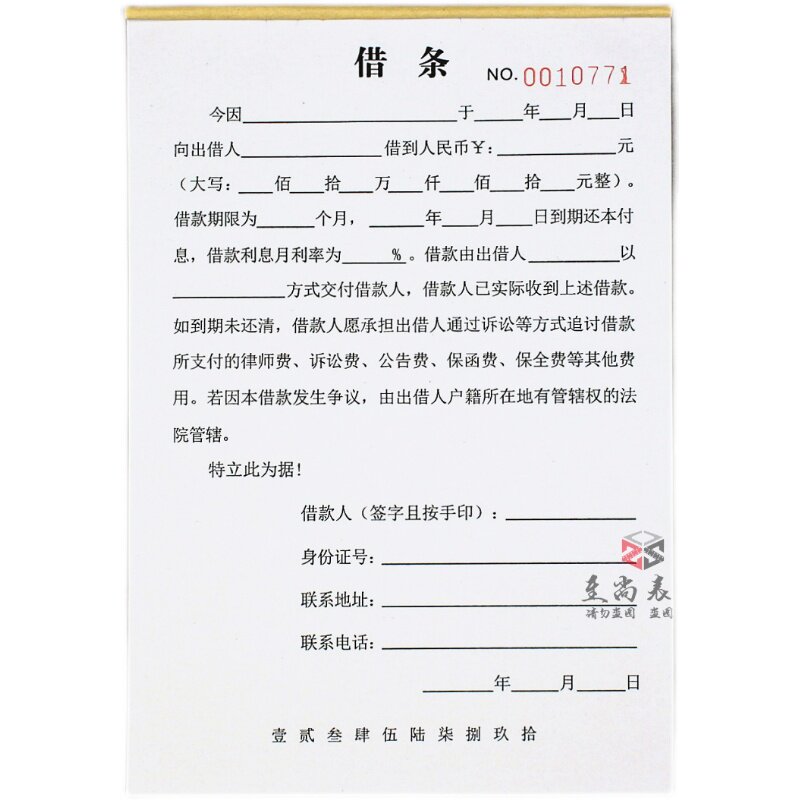 借 条 NO. 0010771
今因____________________于_____年___月___日
向出借人_____________借到人民币￥:___________元
（大写:___佰___拾___万___仟___佰___拾___元整）。
借款期限为_____个月，_____年___月___日到期还本付
息，借款利息月利率为______%。借款由出借人________以
__________方式交付借款人，借款人已实际收到上述借款。
如到期未还清，借款人愿承担出借人通过诉讼等方式追讨借款
所支付的律师费、诉讼费、公告费、保函费、保全费等其他费
用。若因本借款发生争议，由出借人户籍所在地有管辖权的法
院管辖。
特立此为据!
借款人（签字且按手印）:____________
身份证号:______________________
联系地址:______________________
联系电话:______________________
______年____月____日
壹贰叁肆伍陆柒捌玖拾
至尚表
请勿盗图 盗图